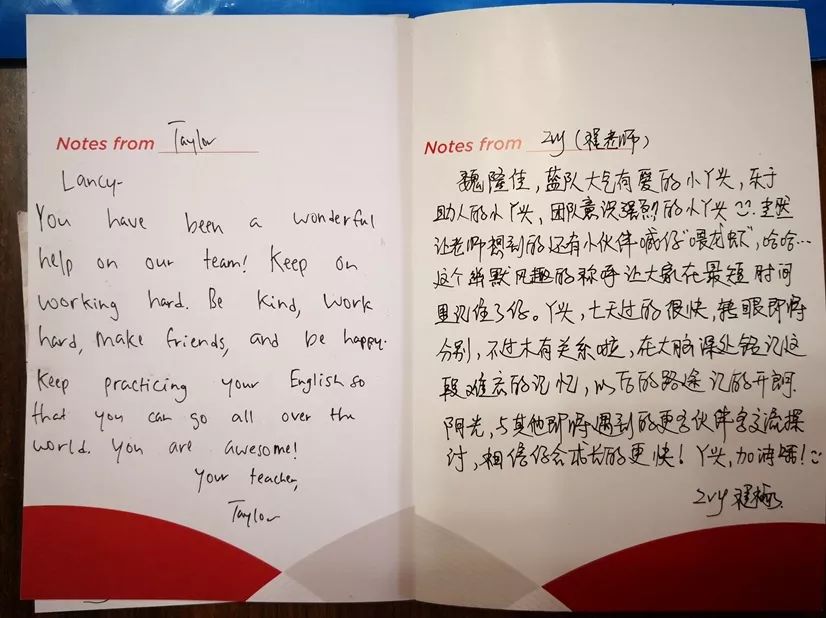 Notes from Taylor
Lancy-
You have been a wonderful
help on our team! Keep on
working hard. Be kind, work
hard, make friends, and be happy.
Keep practicing your English so
that you can go all over the
world. You are awesome!
Your teacher,
Taylor
Notes from Ivy (翟老师)
魏隆佳，蓝队大气有爱的小丫头，乐于
助人的小丫头，团队意识强烈的小丫头
让老师想到的还有小伙伴喊你“喂龙虾”，哈哈…
这个幽默风趣的称呼让大家在最短时间
里记住了你。丫头，七天过的很快，转眼即将
分别，不过木有关系啦，在大脑深处铭记这
段难忘的记忆，以后的路途记的开朗
阳光，与其他即将遇到的更多伙伴多交流探
讨，相信你会成长的更快！丫头，加油喔！
Ivy 翟